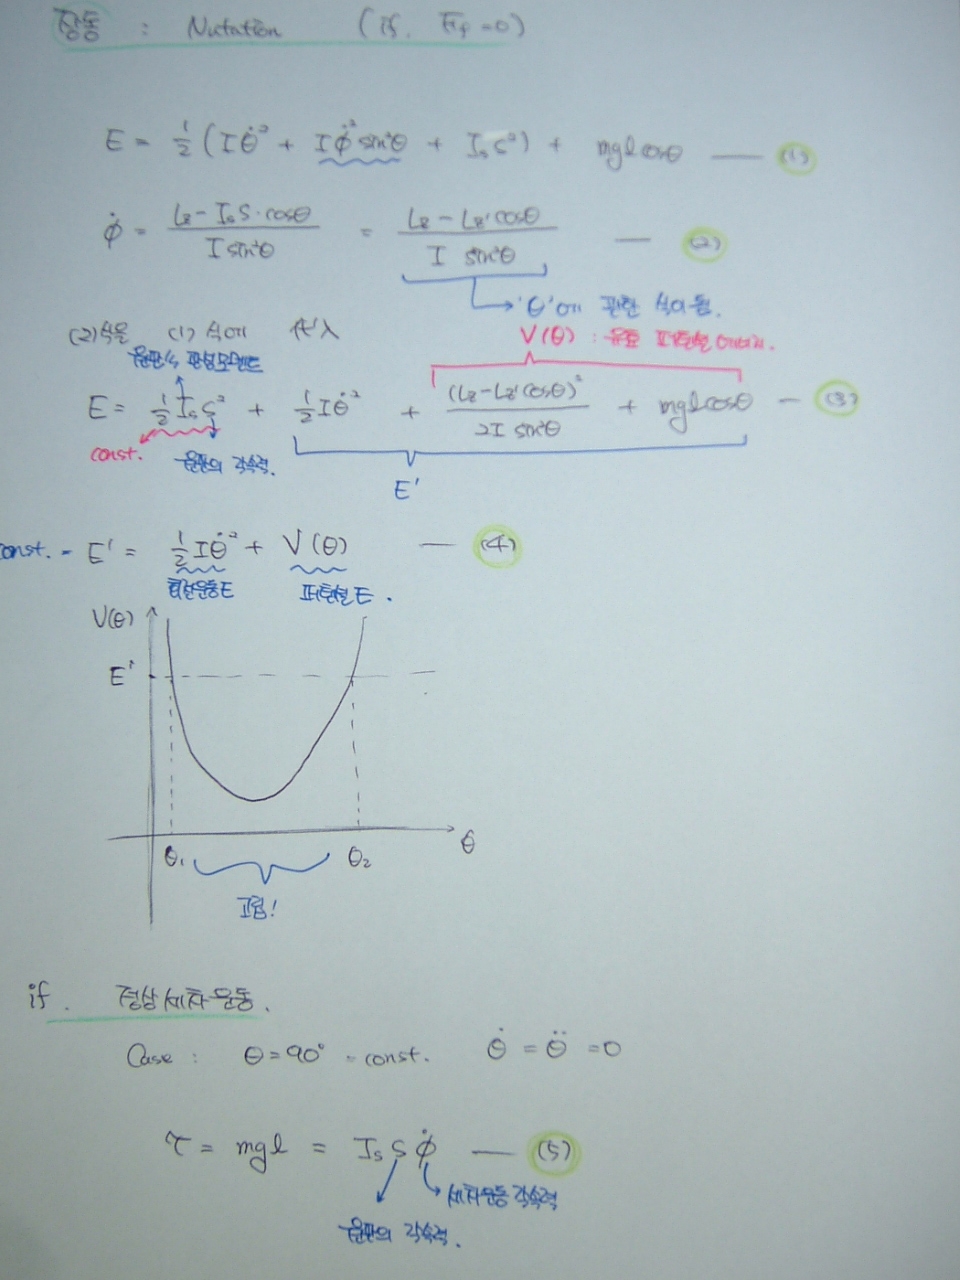 장동 : Nutation (if, Fif =0)
E = ½ (Iθ̇² + Iφ̇² sin²θ + Is S²) + mgl cosθ — (1)
φ̇ = (Lz - Is S·cosθ)/(I sin²θ) = (Lz - Lz' cosθ)/(I sin²θ) — (2)
'θ'에 관한 식이 됨.
(2)식을 (1) 식에 代入
V(θ) : 유효 퍼텐셜 에너지.
원판의 관성모멘트
E = ½ Is S² + ½ Iθ̇² + (Lz - Lz' cosθ)²/(2I sin²θ) + mgl cosθ — (3)
const.
원판의 각속력.
E'
const. = E' = ½ Iθ̇² + V(θ) — (4)
회전운동E 퍼텐셜E.
V(θ)
E'
θ₁ θ₂ θ
if. 정상세차운동.
Case : θ = 90° = const. θ̇ = θ̈ = 0
τ = mgl = Is S φ̇ — (5)
세차운동 각속력
원판의 각속력.